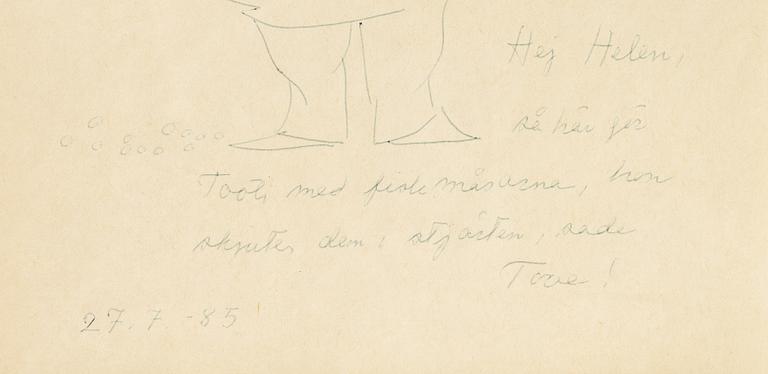 Hej Helen,
så här gör
Tooti med fiskmåsarna, hon
skjuter dem i stjärten, sade
Tove!
27.7 -85